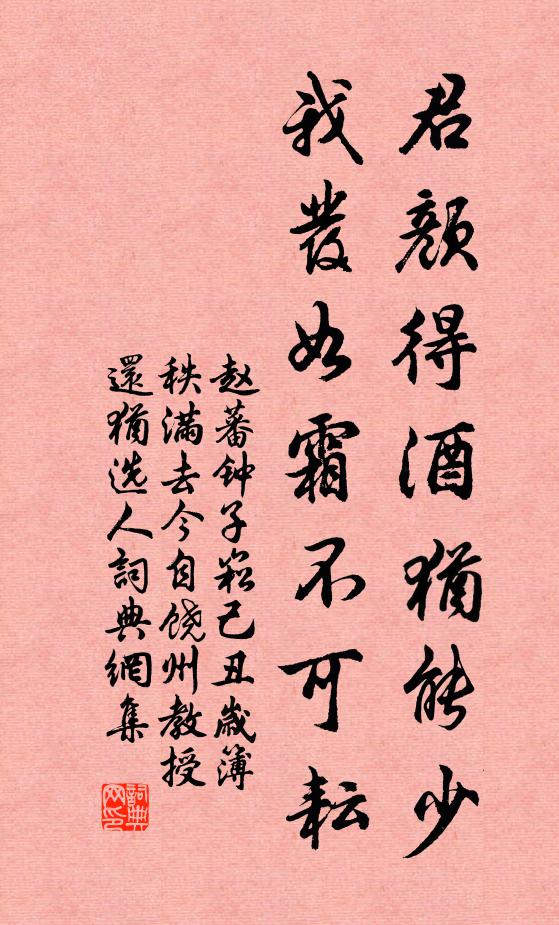 君颜得酒犹能少
我發如霜不可耘
赵蕃钟子崧己丑歲簿
秩满去今自饶州教授
還犹选人詞典網集
詞典网印